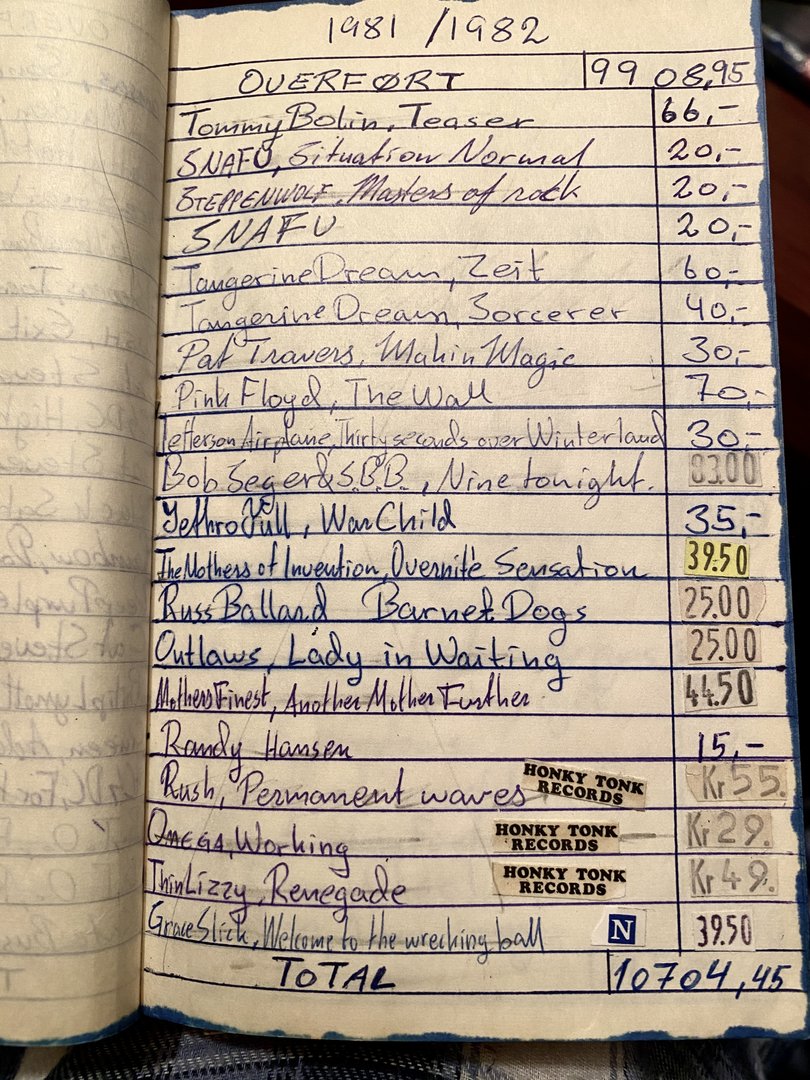 1981/1982
OVERFØRT 9908,95
Tommy Bolin, Teaser 66,-
SNAFU, Situation Normal 20,-
STEPPENWOLF, Masters of rock 20,-
SNAFU 20,-
Tangerine Dream, Zeit 60,-
Tangerine Dream, Sorcerer 40,-
Pat Travers, Makin Magic 30,-
Pink Floyd, The Wall 70,-
Jefferson Airplane, Thirty seconds over Winterland 30,-
Bob Seger & S.B.B., Nine tonight. 83.00
Jethro Tull, War Child 35,-
The Mothers of Invention, Overnite Sensation 39.50
Russ Ballard Barnet Dogs 25.00
Outlaws, Lady in Waiting 25.00
Mothers Finest, Another Mother Further 44.50
Randy Hansen 15,-
Rush, Permanent waves HONKY TONK RECORDS Kr 55.
OMEGA, Working HONKY TONK RECORDS Kr 29.
Thin Lizzy, Renegade HONKY TONK RECORDS Kr 49.
Grace Slick, Welcome to the wrecking ball N 39.50
TOTAL 10704,45